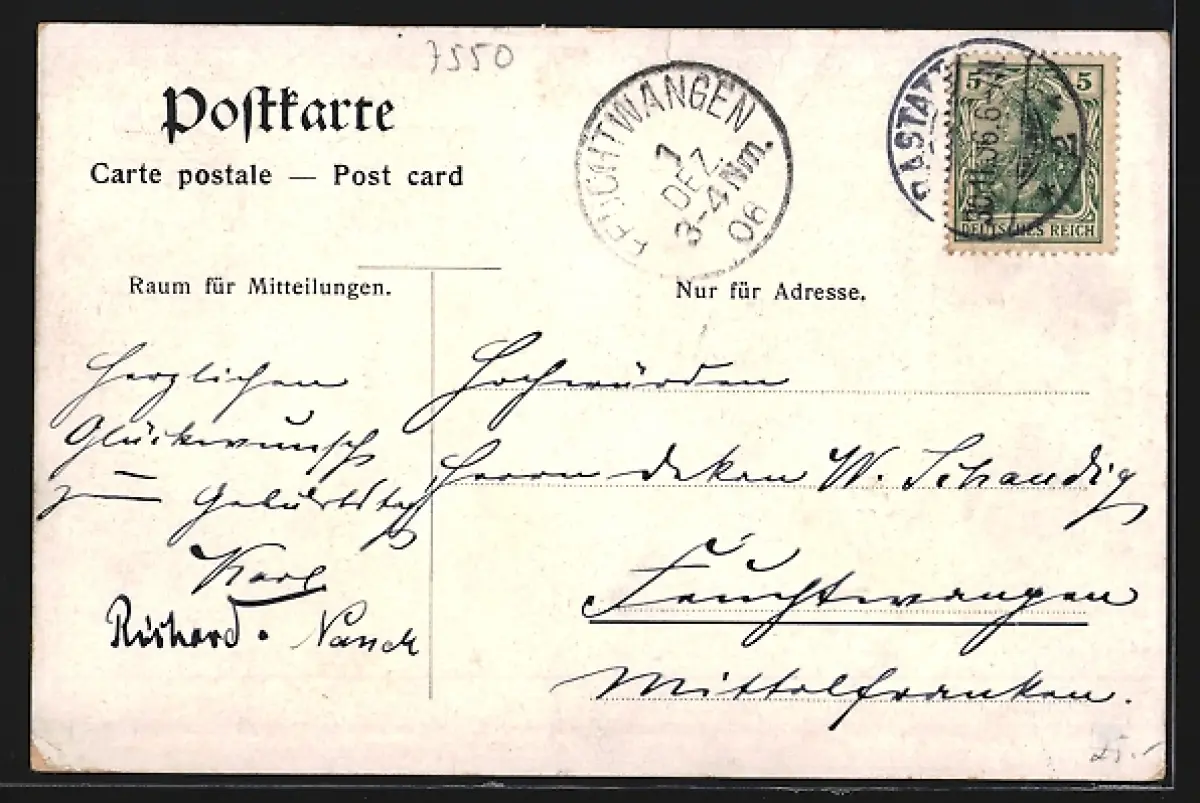 7550
Postkarte
Carte postale — Post card
FEUCHTWANGEN
1
DEZ
3-4 Nm.
06
RASTATT
30.11.06.6-7N
* 2 *
5 5
DEUTSCHES REICH
Raum für Mitteilungen.
Nur für Adresse.
Herzlichen
Glückwunsch
zum Geburtstag
Karl
Richard.
Hochwürden
Herrn Dekan W. Schaudig
Feuchtwangen
Mittelfranken.
25.-